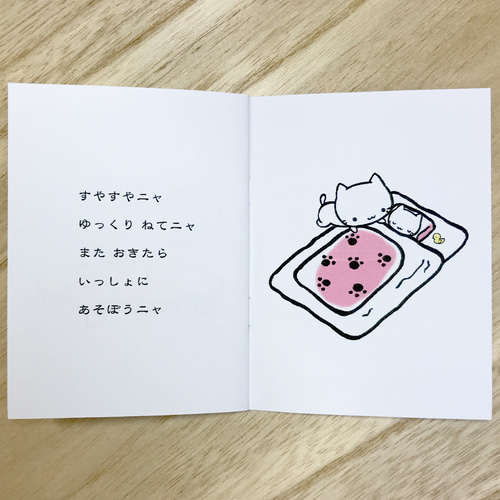 すやすやニャ
ゆっくり ねてニャ
また おきたら
いっしょに
あそぼうニャ